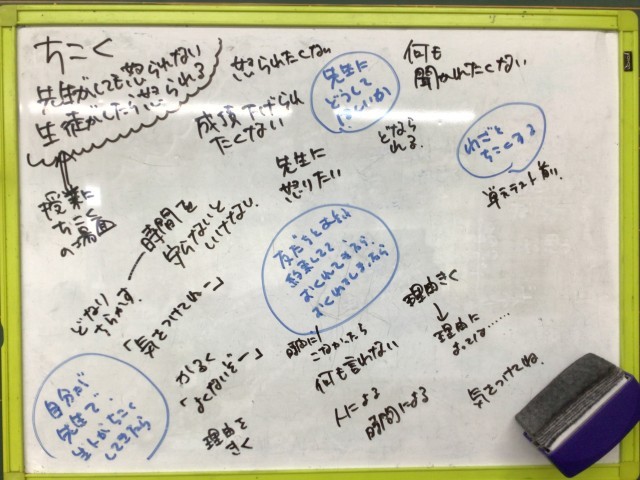 ちこく
先生がしても怒られない
生徒がしたら怒られる
授業に
ちこく
の場面
怒られたくない
成績下げられ
たくない
先生に
どうして
何も
聞かれたくない
どなら
れる
わざと
ちこくする
単元テスト前
先生に
怒りたい
時間を
守らないと
いけない
どなり
ちらかす
「気をつけてねー」
かるく
「よくないぞー」
理由を
きく
友だちと
約束してて
おくれてきたら
おくれてしまったら
時間に
こなかったら
何も言わない
人による
時間による
理由きく
↓
理由に
よっては……
気をつけてね
自分が
先生で
生徒がちこく
してきたら